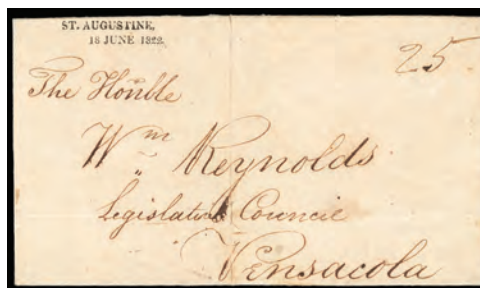 ST. AUGUSTINE,
18 JUNE 1822.
25
The Honble
Wm Reynolds
Legislative Council
Pensacola